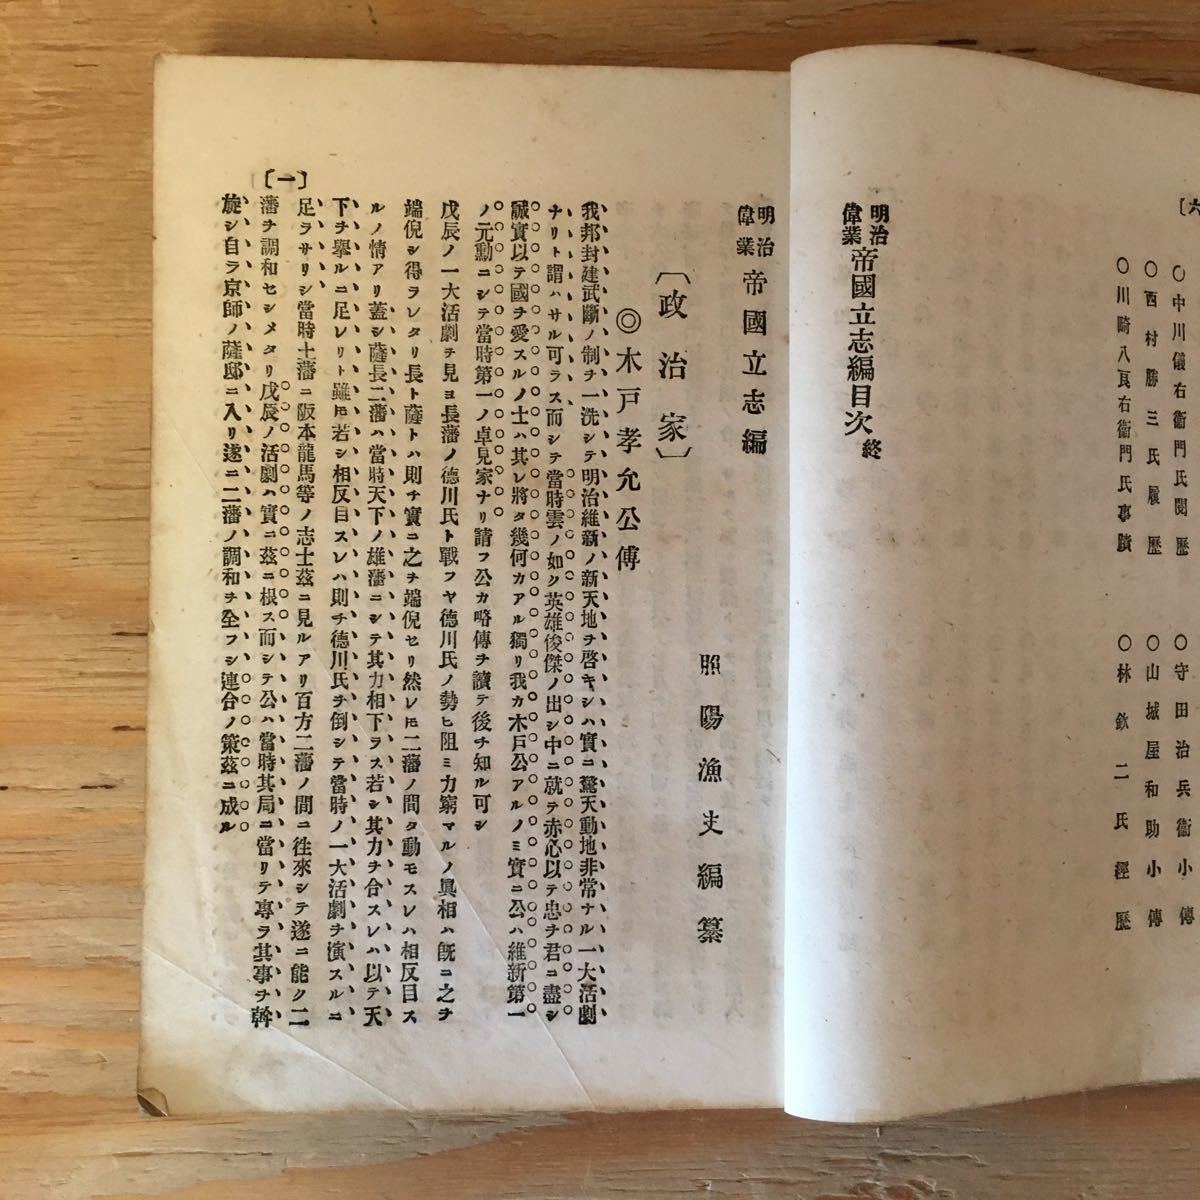 〔六
○中川儀右衞門氏閱歷
○守田治兵衞小傳
○西村勝三氏履歷
○山城屋和助小傳
○川崎八瓦右衞門氏事蹟
○林欽二氏經歷
明治偉業帝國立志編目次終
明治偉業帝國立志編
照陽漁史編纂
〔政治家〕
◎木戸孝允公傳
我邦封建武斷ノ制ヲ一洗シテ明治維新ノ新天地ヲ啓キシハ實ニ驚天動地非常ナル一大活劇
ナリト謂ハサル可ラス而シテ當時雲ノ如ク英雄俊傑ノ出シ中ニ就テ赤心以テ忠ヲ君ニ盡シ
誠實以テ國ヲ愛スルノ士ハ其レ將タ幾何カアル獨リ我カ木戸公アルノミ實ニ公ハ維新第一
ノ元勳ニシテ當時第一ノ卓見家ナリ請フ公カ略傳ヲ讀テ後チ知ル可シ
戊辰ノ一大活劇ヲ見ヨ長藩ノ德川氏ト戰フヤ德川氏ノ勢ヒ阻ミ力窮マルノ眞相ハ旣ニ之ヲ
端倪シ得ラレタリ長ト薩トハ則チ實ニ之ヲ端倪セリ然レ𪜈二藩ノ間タ動モスレハ相反目ス
ルノ情アリ蓋シ薩長二藩ハ當時天下ノ雄藩ニシテ其力相下ラス若シ其力ヲ合スレハ以テ天
下ヲ擧ルニ足レリト雖𪜈若シ相反目スレハ則チ德川氏ヲ倒シテ當時ノ一大活劇ヲ演スルニ
足ラサリシ當時土藩ニ阪本龍馬等ノ志士茲ニ見ルアリ百方二藩ノ間ニ往來シテ遂ニ能ク二
藩ヲ調和セシメタリ戊辰ノ活劇ハ實ニ茲ニ根ス而シテ公ハ當時其局ニ當リテ專ラ其事ヲ斡
旋シ自ラ京師ノ薩邸ニ入リ遂ニ二藩ノ調和ヲ全フシ連合ノ策茲ニ成ル
〔一〕